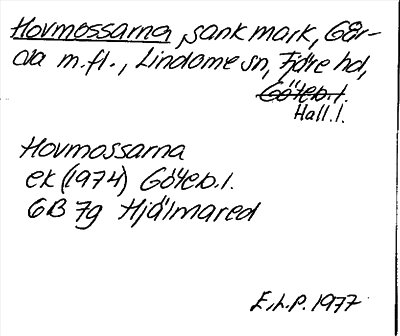 Hovmossarna, sank mark, Går-
da m.fl., Lindome sn, Fjäre hd,
Göteb.l.
Hall.l.
Hovmossarna
ek (1974) Göteb.l.
6B 7g Hjälmared
E.L.P. 1977